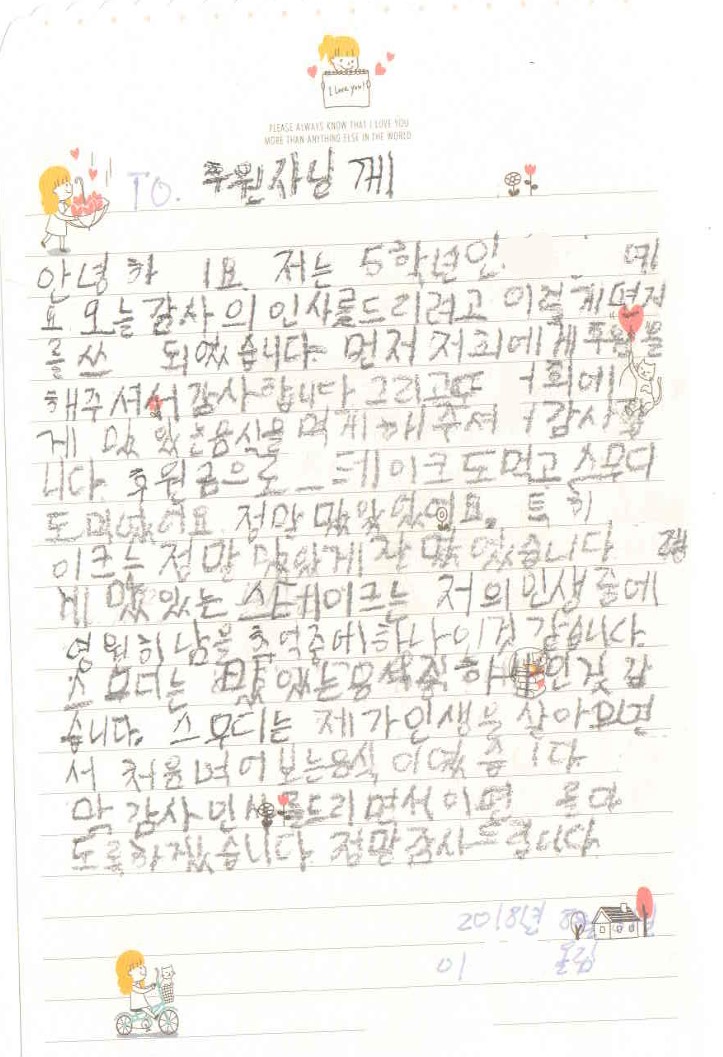 I love you!
PLEASE ALWAYS KNOW THAT I LOVE YOU
MORE THAN ANYTHING ELSE IN THE WORLD
TO. 후원자님 께
안녕하 요 저는 5학년인
요 오늘감사의인사를드리려고 이렇게편지
를 쓰 되었습니다. 먼저 저희에게후원을
해주셔서감사합니다 그리고또 희에
게 맛있는음식을 먹게해주셔 감사합
니다. 후원금으로 스테이크도먹고스무디
도먹었어요 정말 맛있었어요. 특히
이크는 정말 맛있게잘먹었습니다
게 맛있는 스테이크는 저의인생중에
영원히남을추억중에하나이것 같습니다.
스무디는 맛있는음식중하나인것같
습니다. 스무디는 제가인생을살아오면
서 처음먹어보는음식이였습니다
감사인사를드리면서이만
도록하겠습니다. 정말감사드립니다.
2018년
이